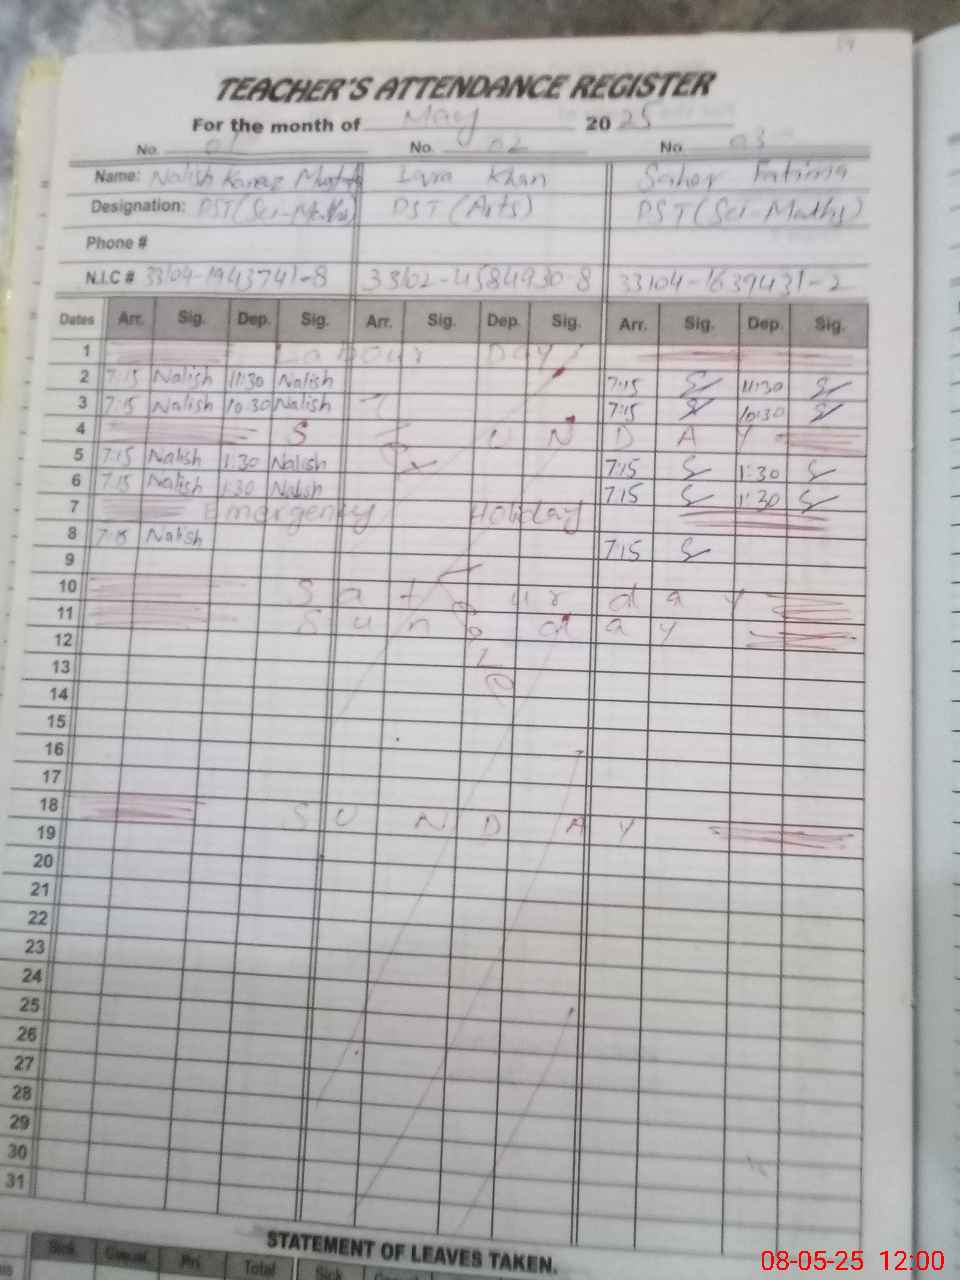 TEACHER'S ATTENDANCE REGISTER
For the month of May 2025
No. 01 No. 02 No. 03
Name: Nalish Kanwal Khan Saher Fatima
Designation: PST (Sci-Maths) PST (Arts) PST (Sci-Maths)
Phone #
N.I.C # 33104-1943741-8 33102-4584930-8 33104-1639431-2
Dates Arr. Sig. Dep. Sig. Arr. Sig. Dep. Sig. Arr. Sig. Dep. Sig.
1 Labour Day
2 7:15 Nalish 11:30 Nalish 7:15 11:30
3 7:15 Nalish 10:30 Nalish 7:15 10:30
4 SUNDAY
5 7:15 Nalish 1:30 Nalish 7:15 1:30
6 7:15 Nalish 1:30 Nalish 7:15 1:30
7 Emergency Holiday
8 7:15 Nalish 7:15
9
10 Saturday
11 Sunday
12
13
14
15
16
17
18 SUNDAY
19
20
21
22
23
24
25
26
27
28
29
30
31
STATEMENT OF LEAVES TAKEN.
Sick Casual Pri. Total Sick
08-05-25 12:00